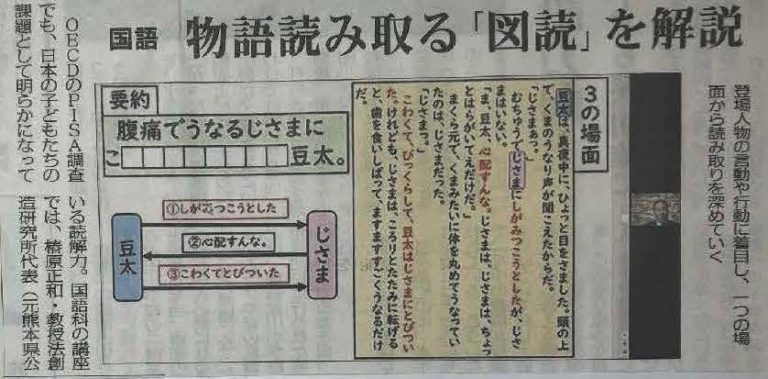 国語 物語読み取る「図読」を解説
登場人物の言動や行動に着目し、一つの場
面から読み取りを深めていく
3の場面
豆太は、真夜中に、ひょっと目をさました。頭の上
で、くまのうなり声が聞こえたからだ。
「じさまぁっ。」
むちゅうでじさまにしがみつこうとしたが、じさ
まはいない。
「ま、豆太、心配すんな。じさまは、じさまは、ちょっ
とはらがいてえだけだ。」
まくら元で、くまみたいに体を丸めてうなってい
たのは、じさまだった。
「じさまっ。」
こわくて、びっくらして、豆太はじさまにとびつい
た。けれども、じさまは、ころりとたたみに転げる
と、歯を食いしばって、ますますすごくうなるだけ
だ。
要約
腹痛でうなるじさまに
こ
豆太。
豆太
①しがみつこうとした
②心配すんな。
③こわくてとびついた
じさま
OECDのPISA調査
でも、日本の子どもたちの
課題として明らかになって
いる読解力。国語科の講座
では、椿原正和・教授法創
造研究所代表（元熊本県公